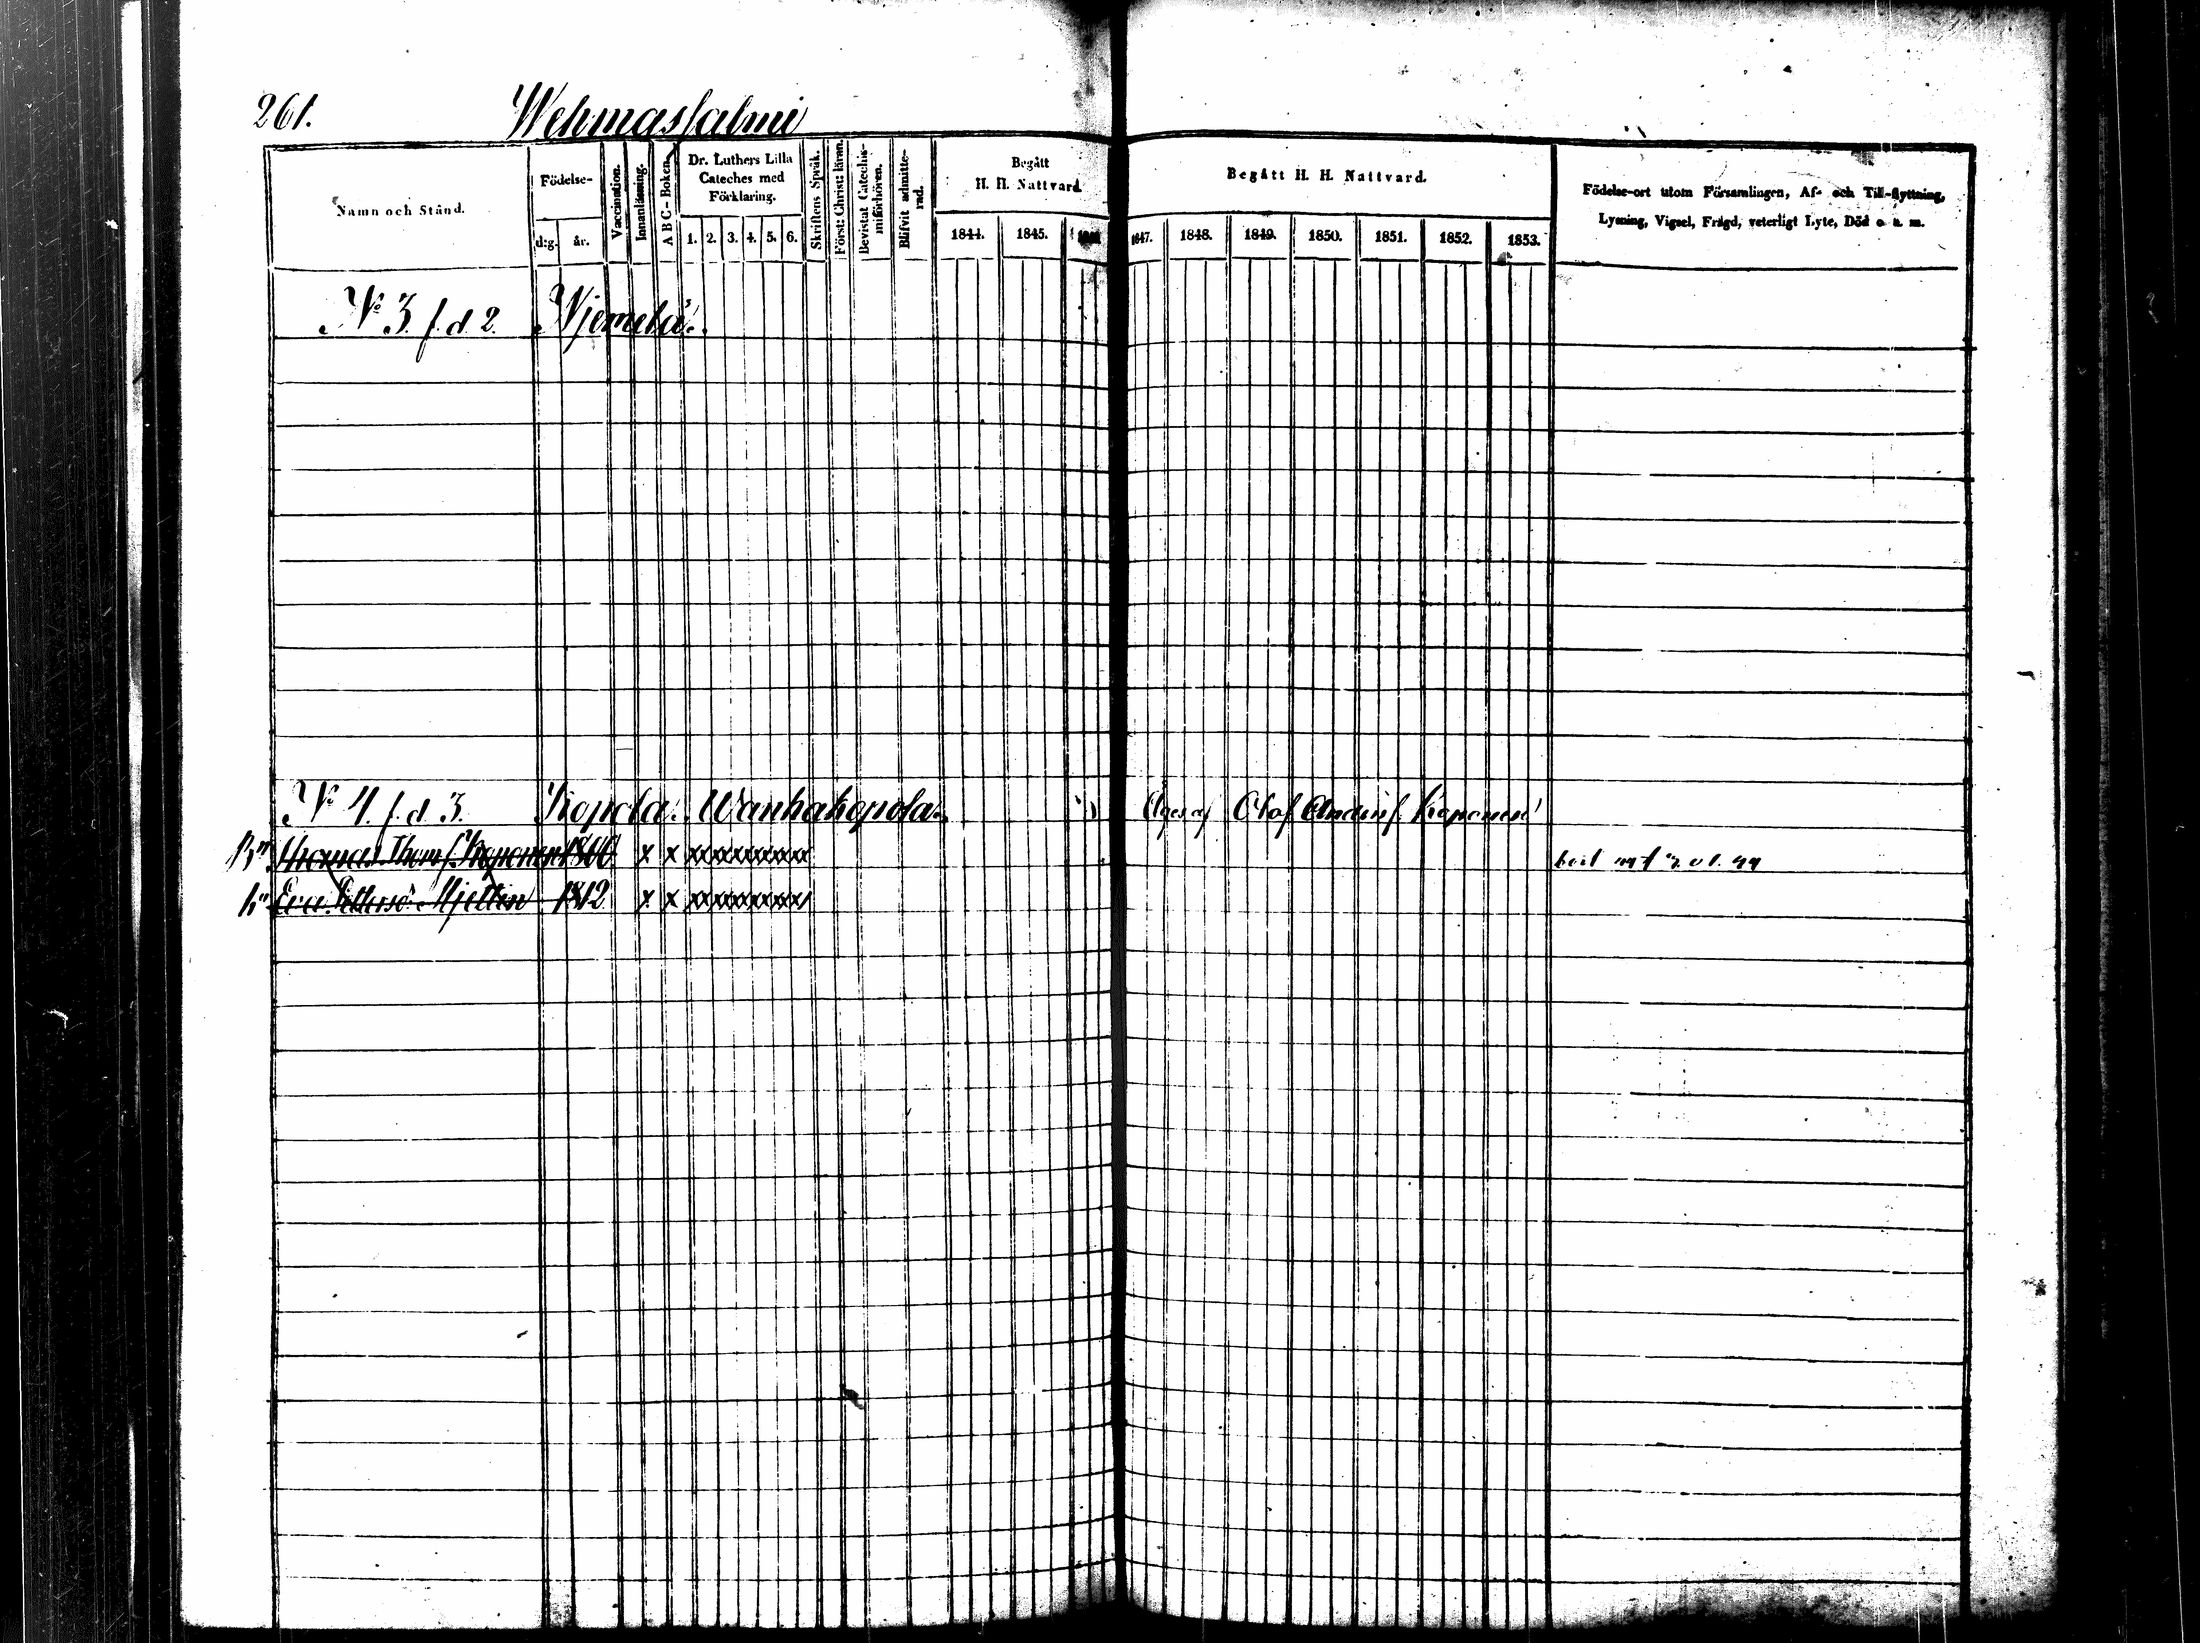 261. Wehmassalmi
Namn och Stånd.
Födelse-
d:g.
år.
Vaccination.
Innanläsning.
A B C-Boken.
Dr. Luthers Lilla
Cateches med
Förklaring.
1. 2. 3. 4. 5. 6.
Skriftens Språk.
Först: Christ: läran.
Bevistat Catechis-
miförhören.
Blifvit admitte-
rad.
Begått
H. H. Nattvard
1844. 1845.
Begått H. H. Nattvard.
1847. 1848. 1849. 1850. 1851. 1852. 1853.
Födelse-ort utom Församlingen, Af- och Till-flyttning,
Lysning, Vigsel, Frägd, veterligt Lyte, Död o. a. m.
No 3. f. d. 2. Njemelä.
No 4. f. d. 3. Kopola. Wanhakopola. Äges af Olof Andersf Koponen
Bn Thomas Thomsf. Koponen 1800 x x xxxxxxxxx
hu Eva Pettersd: Mjettin 1812 x x xxxxxxxxx